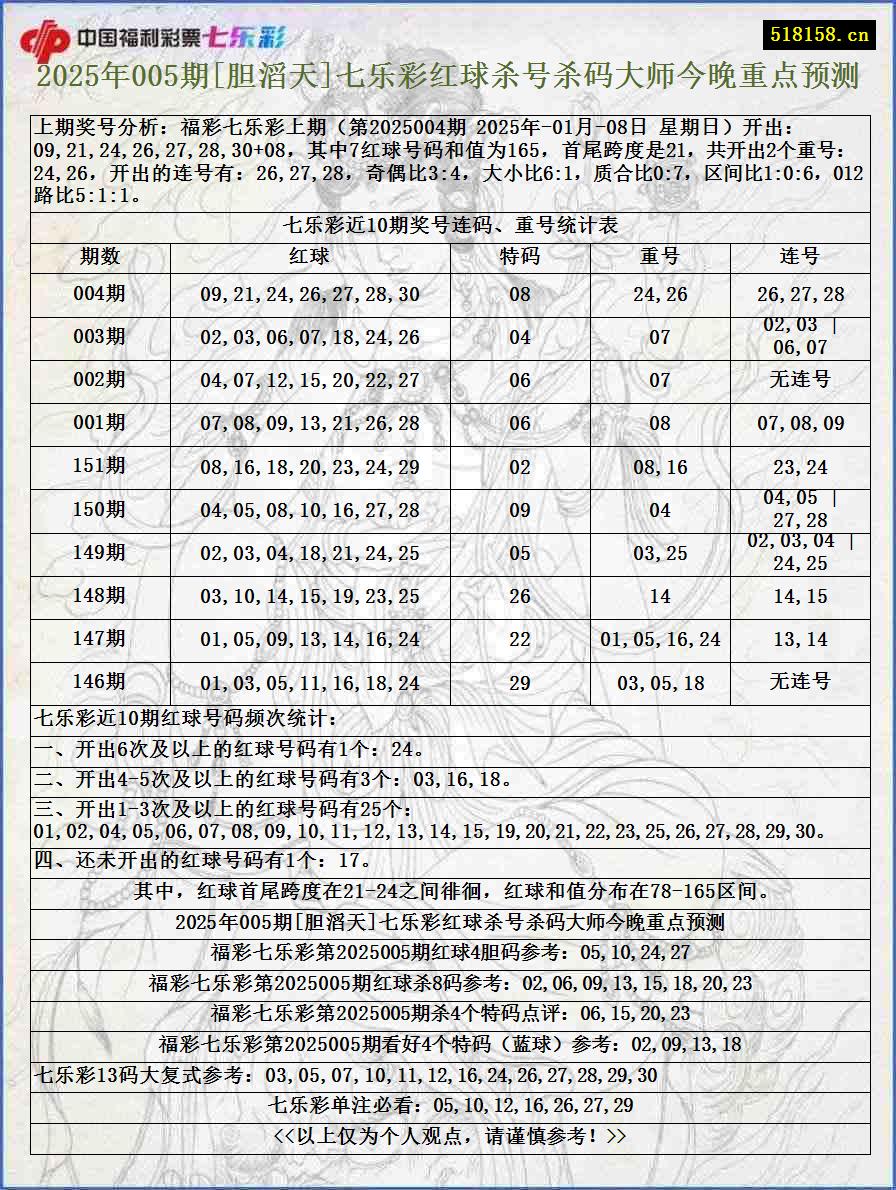 中国福利彩票七乐彩
518158.cn
2025年005期[胆滔天]七乐彩红球杀号杀码大师今晚重点预测
上期奖号分析：福彩七乐彩上期（第2025004期 2025年-01月-08日 星期日）开出：
09,21,24,26,27,28,30+08，其中7红球号码和值为165，首尾跨度是21，共开出2个重号：
24,26，开出的连号有：26,27,28，奇偶比3:4，大小比6:1，质合比0:7，区间比1:0:6，012
路比5:1:1。
七乐彩近10期奖号连码、重号统计表
期数 红球 特码 重号 连号
004期 09,21,24,26,27,28,30 08 24,26 26,27,28
003期 02,03,06,07,18,24,26 04 07 02,03 | 06,07
002期 04,07,12,15,20,22,27 06 07 无连号
001期 07,08,09,13,21,26,28 06 08 07,08,09
151期 08,16,18,20,23,24,29 02 08,16 23,24
150期 04,05,08,10,16,27,28 09 04 04,05 | 27,28
149期 02,03,04,18,21,24,25 05 03,25 02,03,04 | 24,25
148期 03,10,14,15,19,23,25 26 14 14,15
147期 01,05,09,13,14,16,24 22 01,05,16,24 13,14
146期 01,03,05,11,16,18,24 29 03,05,18 无连号
七乐彩近10期红球号码频次统计：
一、开出6次及以上的红球号码有1个：24。
二、开出4-5次及以上的红球号码有3个：03,16,18。
三、开出1-3次及以上的红球号码有25个：
01,02,04,05,06,07,08,09,10,11,12,13,14,15,19,20,21,22,23,25,26,27,28,29,30。
四、还未开出的红球号码有1个：17。
其中，红球首尾跨度在21-24之间徘徊，红球和值分布在78-165区间。
2025年005期[胆滔天]七乐彩红球杀号杀码大师今晚重点预测
福彩七乐彩第2025005期红球4胆码参考：05,10,24,27
福彩七乐彩第2025005期红球杀8码参考：02,06,09,13,15,18,20,23
福彩七乐彩第2025005期杀4个特码点评：06,15,20,23
福彩七乐彩第2025005期看好4个特码（蓝球）参考：02,09,13,18
七乐彩13码大复式参考：03,05,07,10,11,12,16,24,26,27,28,29,30
七乐彩单注必看：05,10,12,16,26,27,29
<<以上仅为个人观点，请谨慎参考！>>